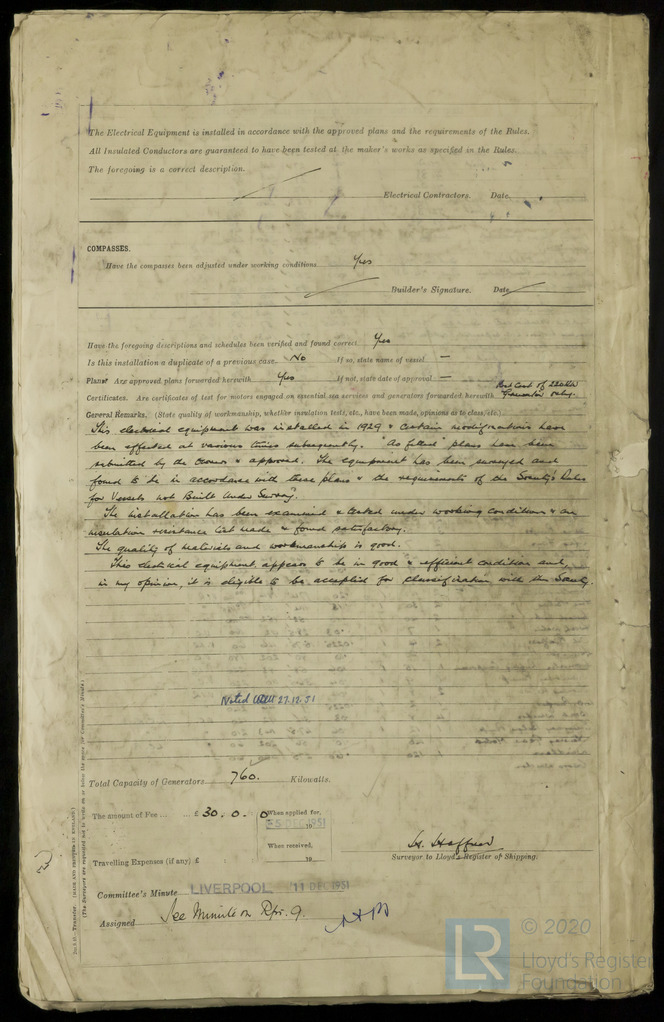 The Electrical Equipment is installed in accordance with the approved plans and the requirements of the Rules.
All Insulated Conductors are guaranteed to have been tested at the maker's works as specified in the Rules.
The foregoing is a correct description.
Electrical Contractors. Date
COMPASSES.
Have the compasses been adjusted under working conditions Yes
Builder's Signature. Date
Have the foregoing descriptions and schedules been verified and found correct Yes
Is this installation a duplicate of a previous case No If so, state name of vessel —
Plans. Are approved plans forwarded herewith Yes If not, state date of approval —
Certificates. Are certificates of test for motors engaged on essential sea services and generators forwarded herewith Test Cert of 220KW Generator only.
General Remarks. (State quality of workmanship, whether insulation tests, etc., have been made, opinions as to class, etc.)
This electrical equipment was installed in 1929 & certain modifications have
been effected at various times subsequently. "As fitted" plans have been
submitted by the Owners & approved. The equipment has been surveyed and
found to be in accordance with these plans & the requirements of the Society's Rules
for Vessels not Built Under Survey.
The installation has been examined & tested under working conditions & an
insulation resistance test made & found satisfactory.
The quality of materials and workmanship is good.
This electrical equipment appears to be in good & efficient condition and,
in my opinion, it is eligible to be accepted for classification with this Society.
Noted 27.12.51
Total Capacity of Generators 760. Kilowatts.
The amount of Fee ... £ 30. 0. 0 When applied for,
DEC 1951
19
When received,
Travelling Expenses (if any) £ : 19
Surveyor to Lloyd's Register of Shipping.
Committee's Minute LIVERPOOL 11 DEC 1951
Assigned See Minute on Rpt. 9.
(MADE AND PRINTED IN ENGLAND.)
(The Surveyors are requested not to write on or below the space for Committee's Minute.)
LR
© 2020
Lloyd's Register
Foundation